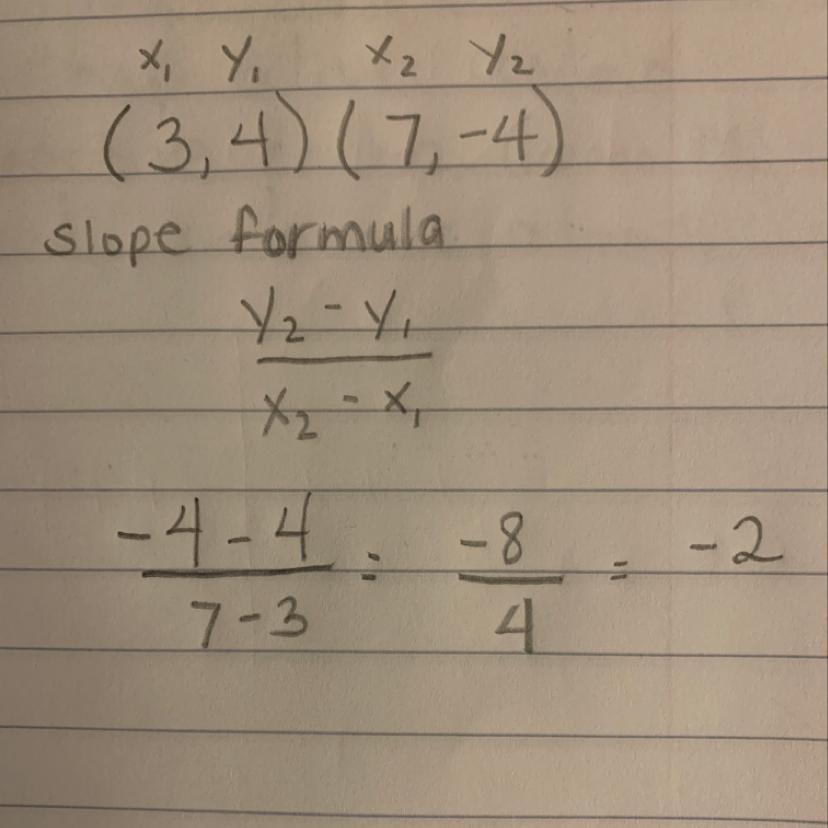 x₁ y₁ x₂ y₂
(3, 4) (7, -4)
slope formula
y₂ - y₁
x₂ - x₁
-4 - 4 = -8 = -2
7 - 3 4